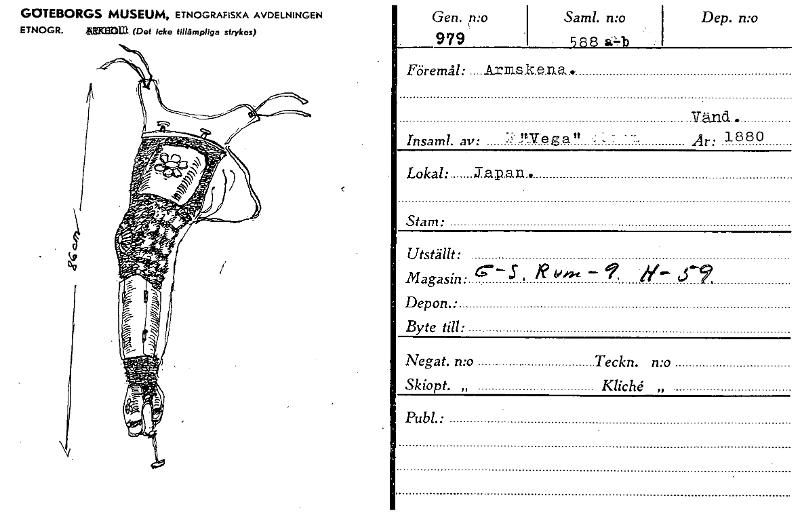 GÖTEBORGS MUSEUM, ETNOGRAFISKA AVDELNINGEN
ETNOGR. ARKEOL. (Det icke tillämpliga strykes)
86 cm
Gen. n:o Saml. n:o Dep. n:o
979 588 a-b
Föremål: Armskena.
Vänd.
Insaml. av: "Vega" År: 1880
Lokal: Japan.
Stam:
Utställt:
Magasin: G-S. Rum-9. H-59.
Depon.:
Byte till:
Negat. n:o Teckn. n:o
Skiopt. „ Kliché „
Publ.: